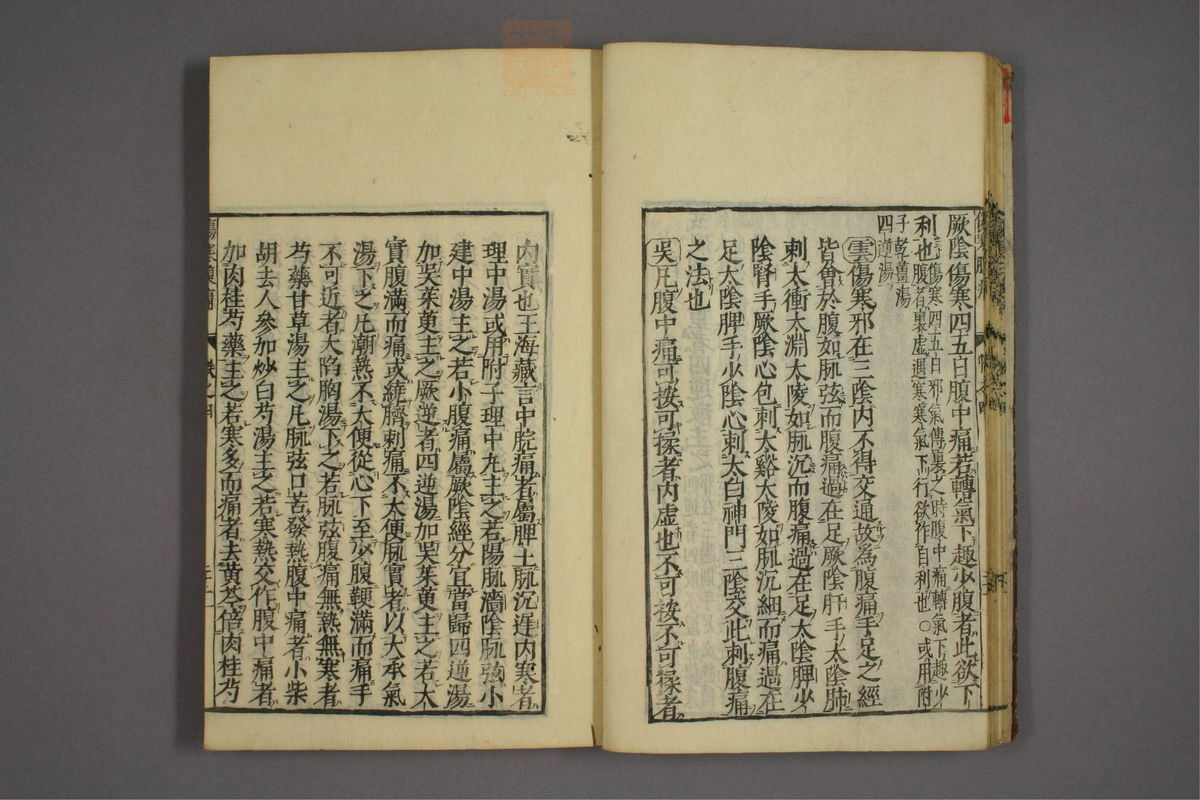 厥陰傷寒四五日腹中痛若轉氣下趣少腹者此欲下
利
傷寒四五日邪氣傳裏之時腹中痛轉氣下趣少
利也腹者裏虛遇寒寒氣下行欲作自利也○或用附
子乾薑湯
四逆湯
雲傷寒邪在三陰內不得交通故為腹痛手足之經
皆會於腹如脉弦而腹痛過在足厥陰肝手太陰肺
刺太衝太淵太陵如脉沉而腹痛過在足太陰脾少
陰腎手厥陰心包刺太谿太陵如脉沉細而痛過在
足太陰脾手少陰心刺太白神門三陰交此刺腹痛
之法也
吳凡腹中痛可按可揉者內虛也不可按不可揉者
內實也王海藏言中脘痛者屬脾土脉沉遲內寒者
理中湯或用附子理中丸主之若陽脉濇陰脉弦小
建中湯主之若小腹痛屬厥陰經分宜當歸四逆湯
加吳茱萸主之厥逆者四逆湯加吳茱萸主之若太
實腹滿而痛或繞臍刺痛不大便脉實者以大承氣
湯下之凡潮熱不大便從心下至少腹鞕滿而痛手
不可近者大陷胸湯下之若脉弦腹痛無熱無寒者
芍藥甘草湯主之凡脉弦口苦發熱腹中痛者小柴
胡去人參加炒白芍湯主之若寒熱交作腹中痛者
加肉桂芍藥主之若寒多而痛者去黃芩倍肉桂芍